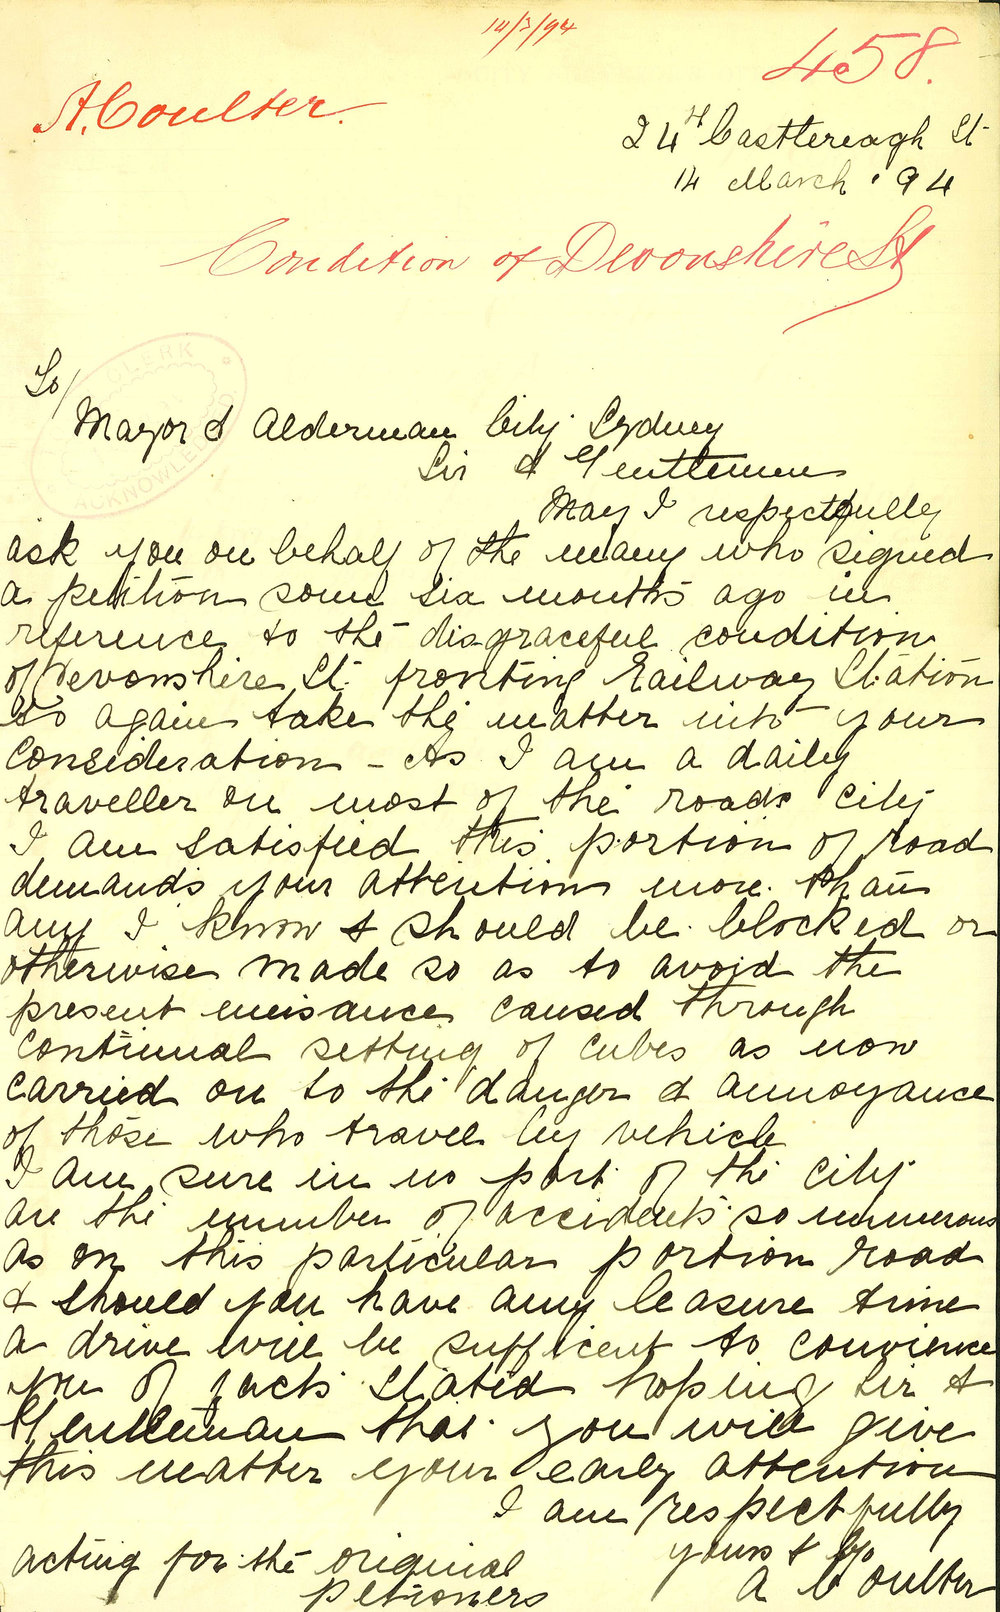 14/3/94
458.
A. Coulter.
244 Castlereagh St
14 March '94
Condition of Devonshire St
CLERK
ACKNOWLED
To/
Mayor & Alderman City Sydney
Sir & Gentlemen
May I respectfully
ask you on behalf of the many who signed
a petition some six months ago in
reference to the disgraceful condition
of Devonshire St. fronting Railway Station
to again take the matter into your
consideration - As I am a daily
traveller on most of the roads city
I am satisfied this portion of road
demands your attention more than
any I know & should be blocked or
otherwise made so as to avoid the
present nuisance caused through
continual setting of cubes as now
carried on to the danger & annoyance
of those who travel by vehicle
I am sure in no part of the city
are the number of accidents so numerous
as on this particular portion road
& should you have any leasure time
a drive will be sufficent to convience
you of facts stated hoping Sir &
Gentleman that you will give
this matter your early attention
I am respectfully
yours &
acting for the original
A Coulter
petioners